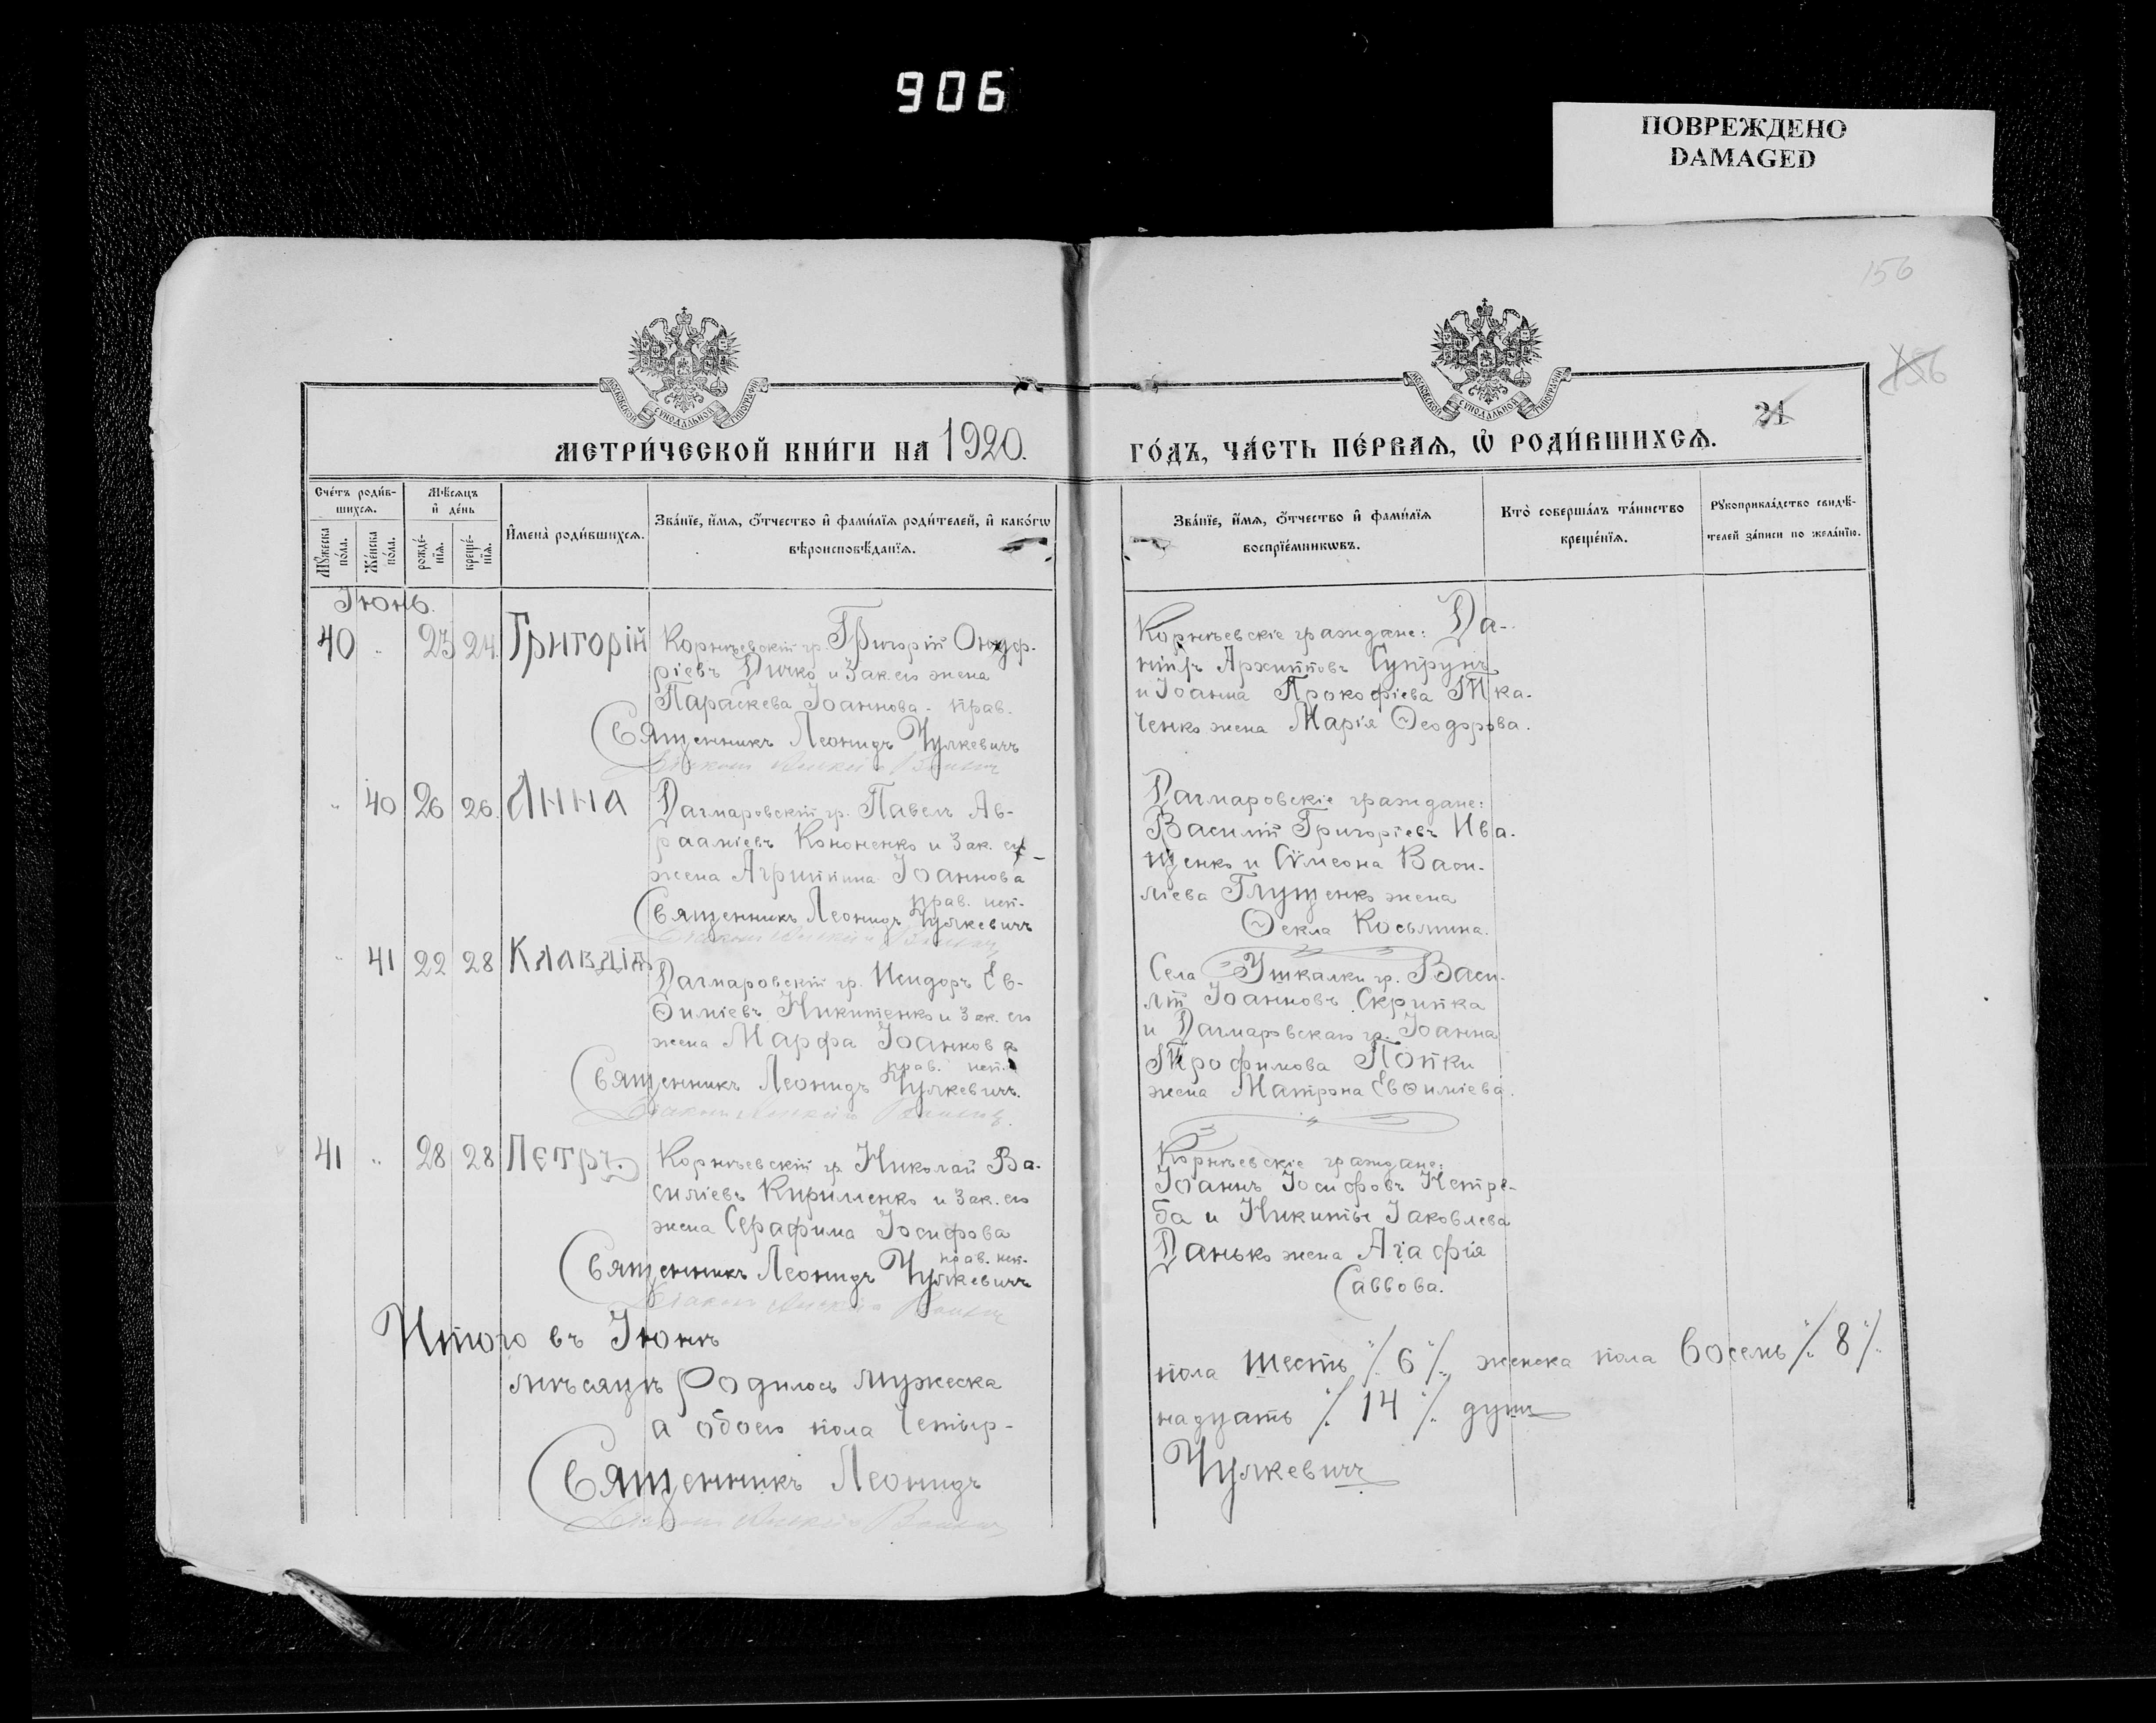 906
ПОВРЕЖДЕНО
DAMAGED
156
156
МОСКОВСКОЙ СѴНОДАЛЬНОЙ ТИПОГРАФІИ
МОСКОВСКОЙ СѴНОДАЛЬНОЙ ТИПОГРАФІИ
31
МЕТРИ́ЧЕСКОЙ КНИ́ГИ НА 1920.
ГО́ДЪ, ЧА́СТЬ ПЕ́РВАѦ, Ѡ҆ РОДИ́ВШИХСѦ.
Сче́тъ роди́в-
шихся.
Мѣ́сяцъ
и҆ де́нь
Мꙋ́жеска
по́ла.
Же́нска
по́ла.
рожде́-
нїѧ.
креще́-
нїѧ.
И҆мена̀ роди́вшихсѧ.
Зва́нїе, и҆́мѧ, ѻ҆́тчество и҆ фами́лїѧ роди́телей, и҆ како́гѡ
вѣроисповѣ́данїѧ.
Зва́нїе, и҆́мѧ, ѻ҆́тчество и҆ фами́лїѧ
воспрїе́мникѡвъ.
Кто̀ соверша́лъ та́инство
креще́нїѧ.
Рꙋкоприкла́дство свидѣ́-
телей за́писи по жела́нїю.
Іюнь.
40 " 23 24. Григорій
Корнѣевскій гр. Григорій Онуф-
ріевъ Дичко и зак. его жена
Параскева Іоаннова - прав.
Священникъ Леонидъ Чулкевичъ
Корнѣевскіе граждане: Да-
ніилъ Архипповъ Супрунъ
и Іоанна Прокофіева Тка-
ченко жена Марія Ѳеодорова.
" 40 26 26. Анна
Дагмаровскій гр. Павелъ Ав-
рааміевъ Кононенко и зак. его
жена Агриппина Іоаннова
прав. исп.
Священникъ Леонидъ Чулкевичъ
Дагмаровскіе граждане:
Василій Григоріевъ Ива-
щенко и Сѵмеона Васи-
ліева Глущенко жена
Ѳекла Косьмина.
" 41 22 28 Клавдія
Дагмаровскій гр. Исидоръ Ев-
ѳиміевъ Никитенко и зак. его
жена Марфа Іоаннова
прав. исп.
Священникъ Леонидъ Чулкевичъ.
Села Ушкалки гр. Васи-
лій Іоанновъ Скрипка
и Дагмаровскаго гр. Іоанна
Трофимова Попки
жена Матрона Евѳиміева.
41 " 28 28 Петръ.
Корнѣевскій гр. Николай Ва-
силіевъ Кириленко и зак. его
жена Серафима Іосифова
прав. исп.
Священникъ Леонидъ Чулкевичъ
Корнѣевскіе граждане:
Іоаннъ Іосифовъ Нетре-
ба и Никиты Іаковлева
Данько жена Агафія
Саввова.
Итого въ Іюнѣ
мѣсяцѣ родилось мужеска
пола шесть ./. 6 ./. женска пола восемь ./. 8 ./.
а обоего пола четыр-
надцать ./. 14 ./. душъ
Священникъ Леонидъ
Чулкевичъ